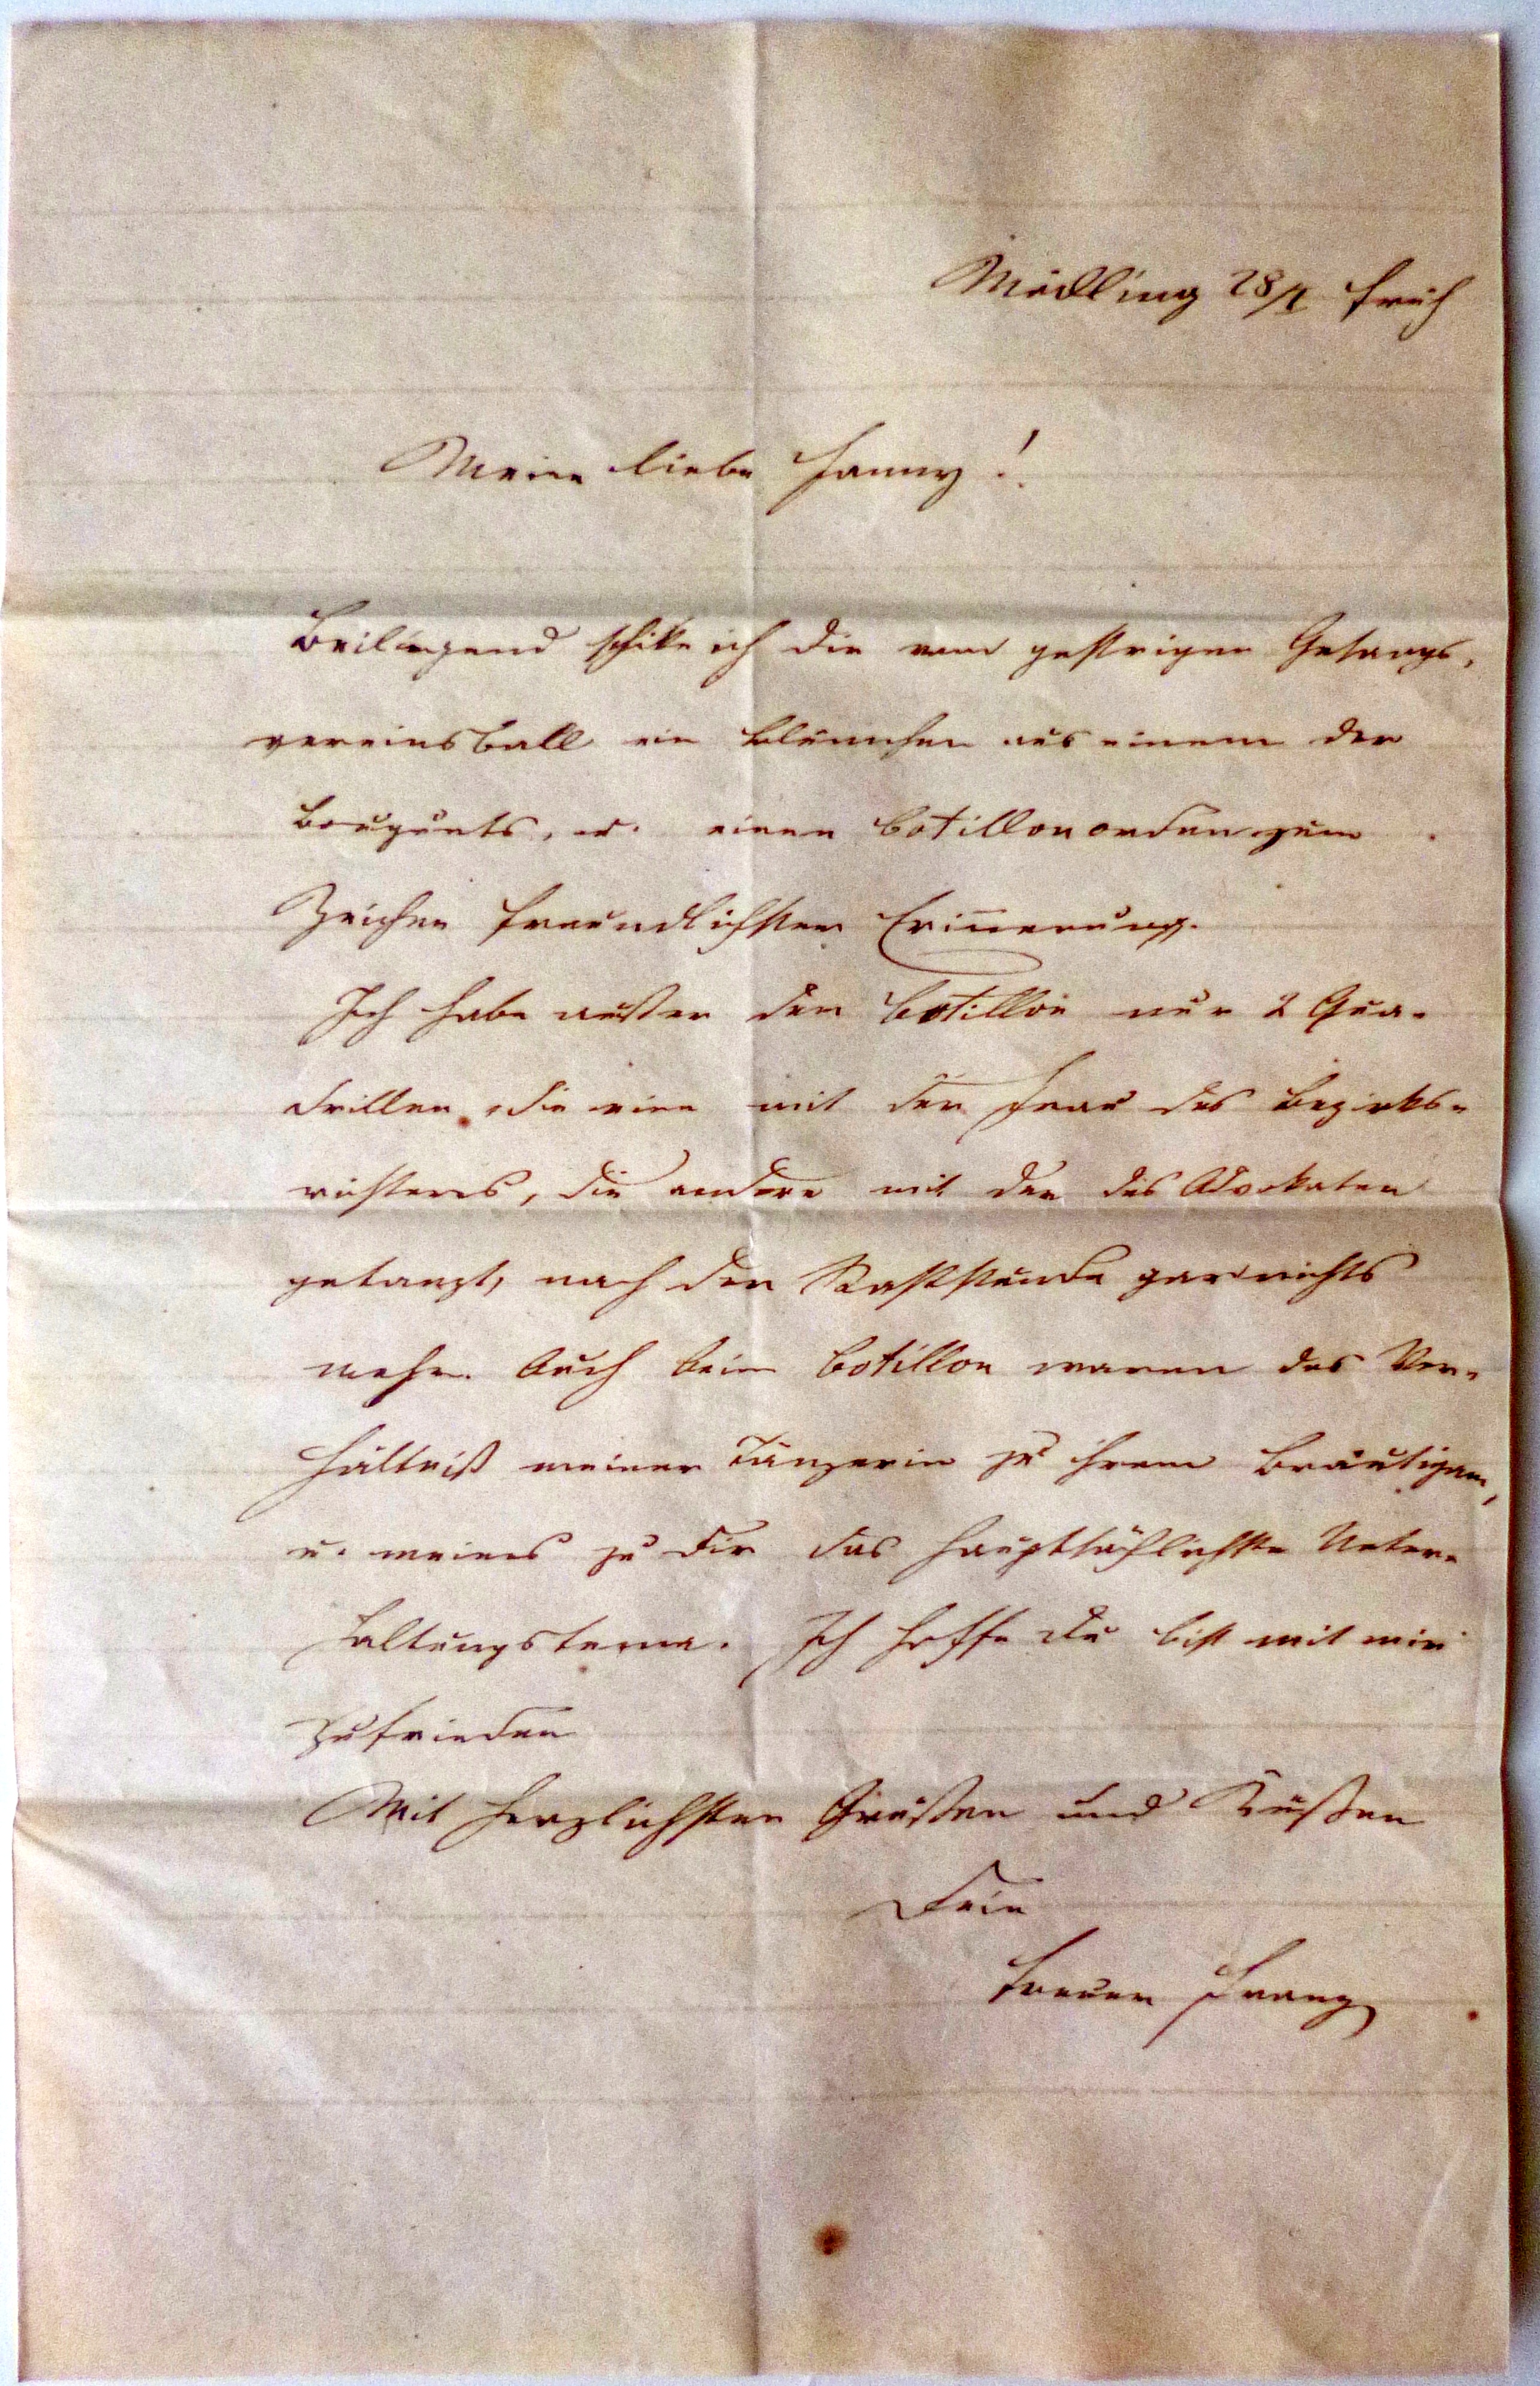 Mödling 28/I früh
Meine liebe Fanny!
Beiliegend schike ich dir vom gestrigen Gesangs-
vereinsball ein Blümchen aus einem der
Bouquets, u. einen Cotillonorden zum
Zeichen freundlichster Erinnerung.
Ich habe außer den Cotillon nur 2 Qua-
drillen, die eine mit der Frau des Bezirks-
richters, die andere mit der des Advokaten
getanzt, nach der Raststunde gar nichts
mehr. Auch beim Cotillon waren das Ver-
hältniß meiner Tänzerin zu ihrem Bräutigam,
u. meines zu Dir das hauptsächlichste Unter-
haltungstema. Ich hoffe du bist mit mir
zufrieden
Mit herzlichsten Grüßen und Küßen
Dein
treuer Franz